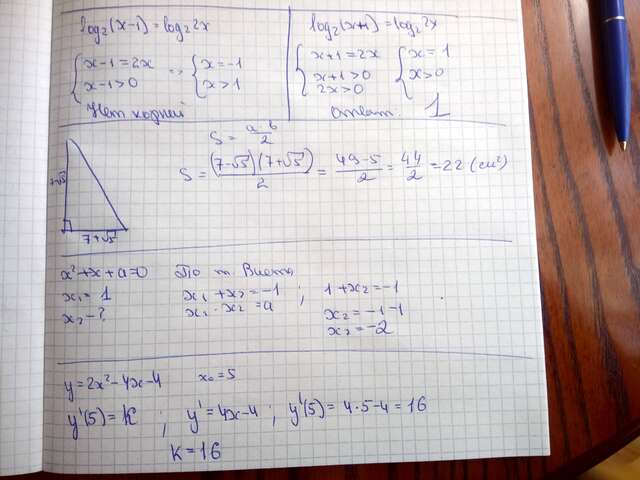 log₂(x-1) = log₂2x
{ x-1=2x
x-1>0
=> { x=-1
x>1
Нет корней
log₂(x+1) = log₂2x
{ x+1=2x
x+1>0
2x>0
{ x=1
x>0
Ответ: 1
S = a·b/2
S = (7-√5)(7+√5)/2 = 49-5/2 = 44/2 = 22 (см²)
7-√5
7+√5
x²+x+a=0 По т Виета
x₁=1 x₁+x₂=-1 ; 1+x₂=-1
x₂-? x₁·x₂=a x₂=-1-1
x₂=-2
y=2x²-4x-4 x₀=5
y'(5)=K ; y'=4x-4 ; y'(5)=4·5-4=16
K=16